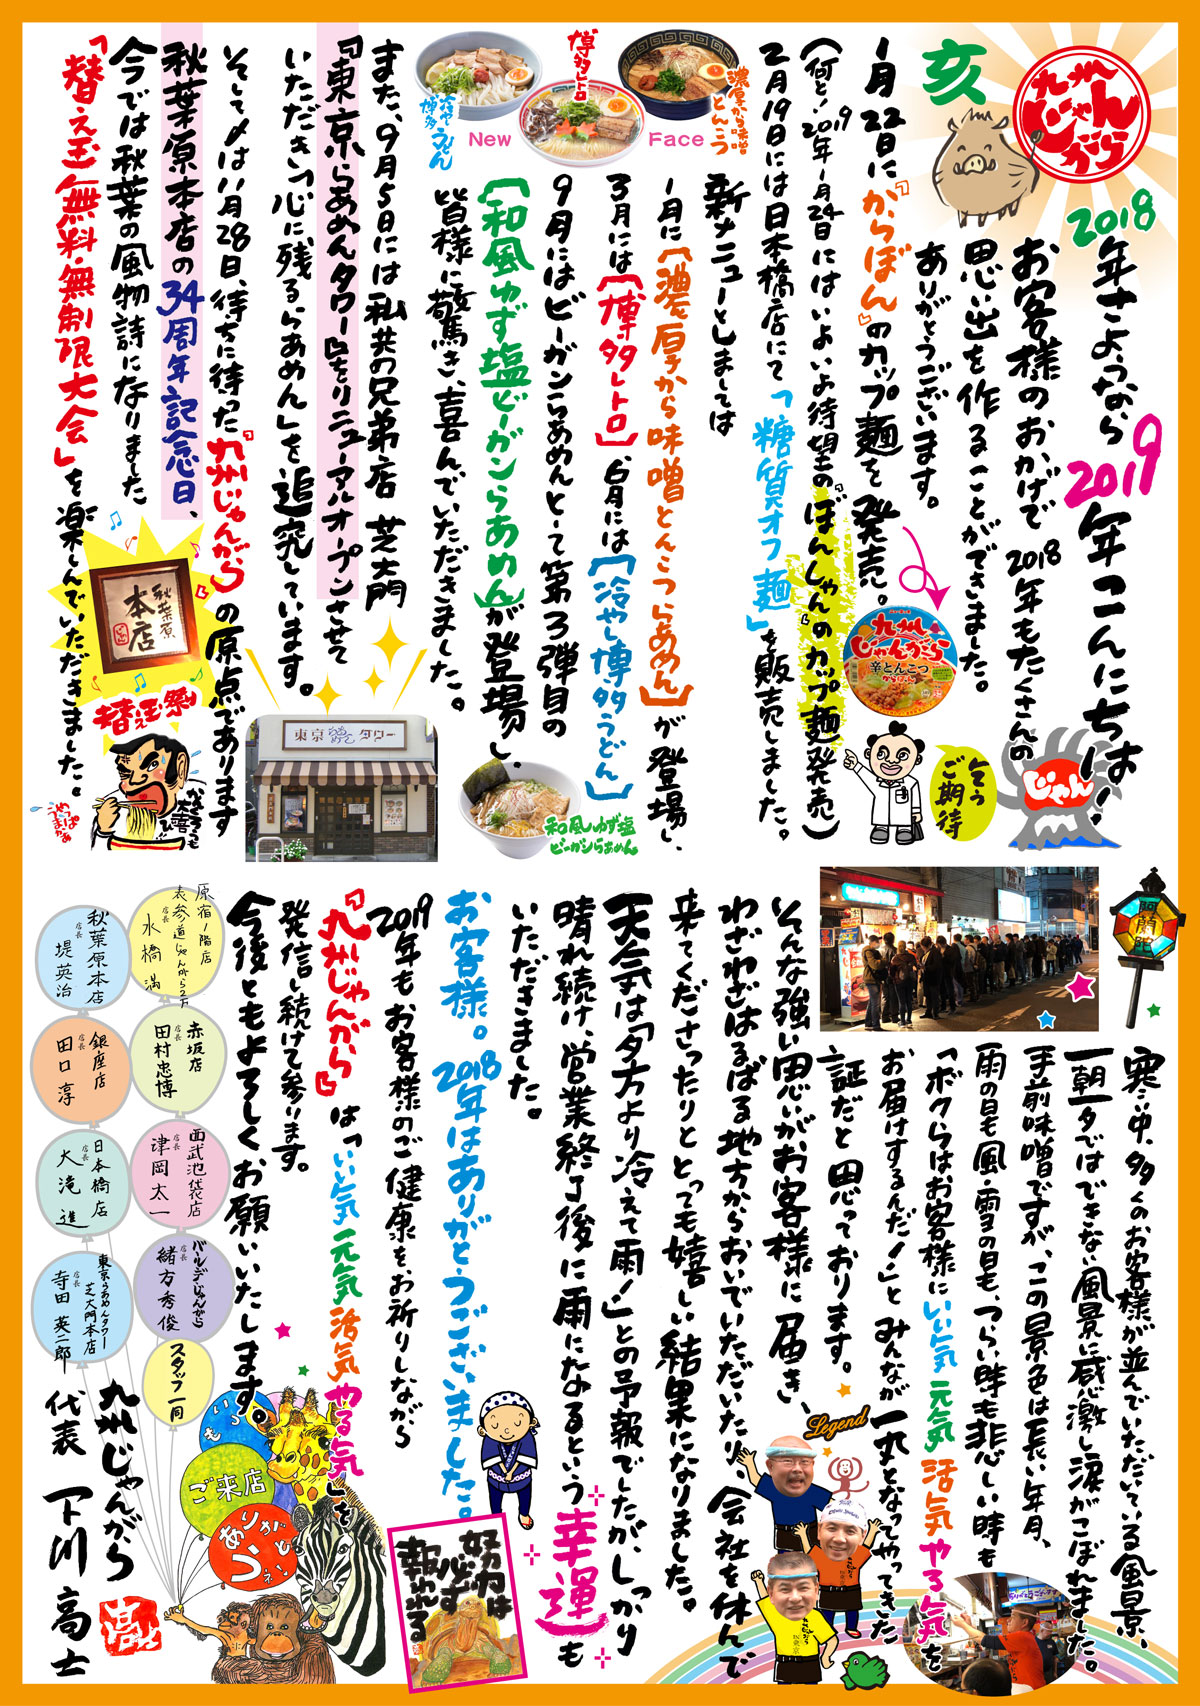 九州じゃんがら
亥
2018年さようなら 2019年こんにちは!
お客様のおかげで2018年もたくさんの
思い出を作ることができました。
ありがとうございます。
1月22日に『からぼん』のカップ麺を発売。
(何と!2019年1月24日にはいよいよ待望の『ぼんしゃん』のカップ麺発売)
2月19日には日本橋店にて「糖質オフ麺」を販売しました。
新メニューとしましては
1月に【濃厚から味噌とんこつらあめん】が登場し、
3月には【博多レトロ】、6月には【冷やし博多うどん】
9月にはビーガンらあめんとして第3弾目の
【和風ゆず塩ビーガンらあめん】が登場し。
皆様に驚き、喜んでいただきました。
また、9月5日には私共の兄弟店 芝大門
『東京らあめんタワー』をリニューアルオープンさせて
いただき「心に残るらあめん」を追究しています。
そして〆は11月28日、待ちに待った『九州じゃんがら』の原点であります
秋葉原本店の34周年記念日、
今では秋葉の風物詩になりました
「替え玉無料・無制限大会」を楽しんでいただきました。
博多レトロ
濃厚から味噌とんこつ
冷やし博多うどん
New Face
九州じゃんがら
辛とんこつ
からぼん
今うご期待
じゃん
和風ゆず塩
ビーガンらあめん
東京らあめんタワー
秋葉原
本店
替え玉祭り
阿蘭陀
寒い中、多くのお客様が並んでいただいている風景、
一朝一夕ではできない風景に感激し涙がこぼれました。
手前味噌ですが、この景色は長い年月、
雨の日も風・雪の日も、つらい時も悲しい時も
「ボクらはお客様にいい気 元気 活気 やる気を
お届けするんだ!」とみんなが一丸となってやってきた
証だと思っております。
そんな強い思いが、お客様に届き、
わざわざはるばる地方からおいでいただいたり、会社を休んで
来てくださったりととっても嬉しい結果になりました。
天気は「夕方より冷えて雨!」との予報でしたが、しっかり
晴れ続け、営業終了後に雨になるという幸運も
いただきました。
お客様。2018年はありがとうございました。
2019年もお客様のご健康を、お祈りしながら
『九州じゃんがら』は「いい気 元気 活気 やる気」を
発信し続けて参ります。
今後ともよろしくお願いいたします。
Legend
努力は
必ず
報われる
いつも
ご来店
ありがとうございます
原宿1階店
表参道じゃんがら2F
水橋 満
秋葉原本店
店長
堤 英治
赤坂店
店長
田村忠博
銀座店
店長
田口 淳
西武池袋店
店長
津岡 太一
日本橋店
店長
大滝 進
バール・デ・じゃんがら
店長
緒方秀俊
東京らあめんタワー
芝大門本店
店長
寺田 英二郎
スタッフ一同
九州じゃんがら
代表 下川 高士
高